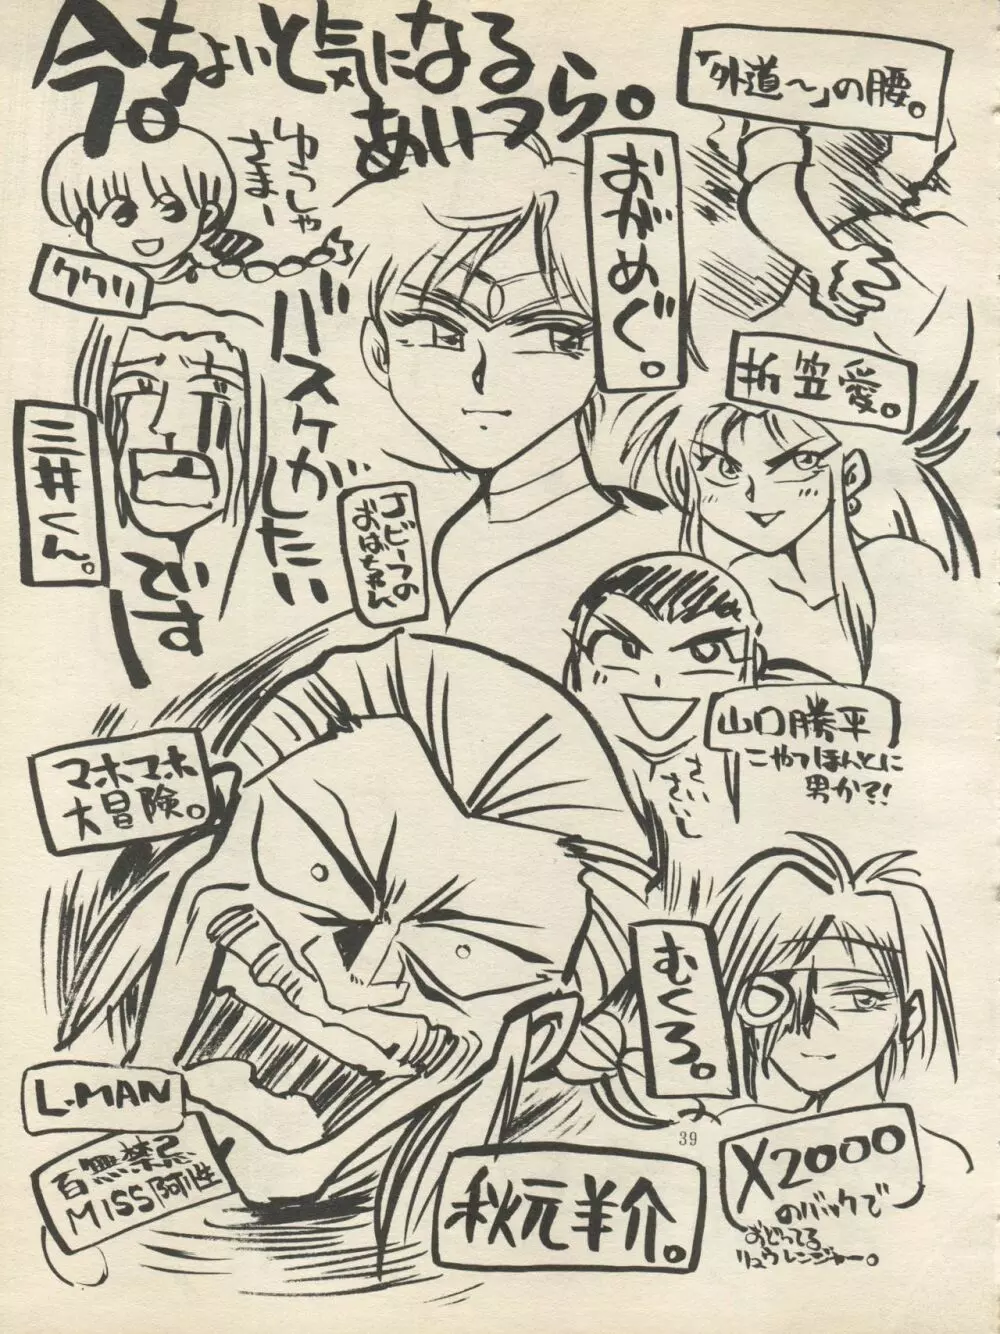 今。ちょいと気になる
あいつら。
「外道〜」の腰。
ゆうしゃ
さまー
ククリ
おがめぐ。
折笠愛。
バスケがしたい
です
三井くん。
Jビーフの
おばちゃん
山口勝平
こやつほんとに
男か?!
マホマホ
大冒険。
むくろ。
L・MAN
百無禁忌
MISS阿性
秋元羊介。
39
X2000
のバックで
おどってる
リュウレンジャー。